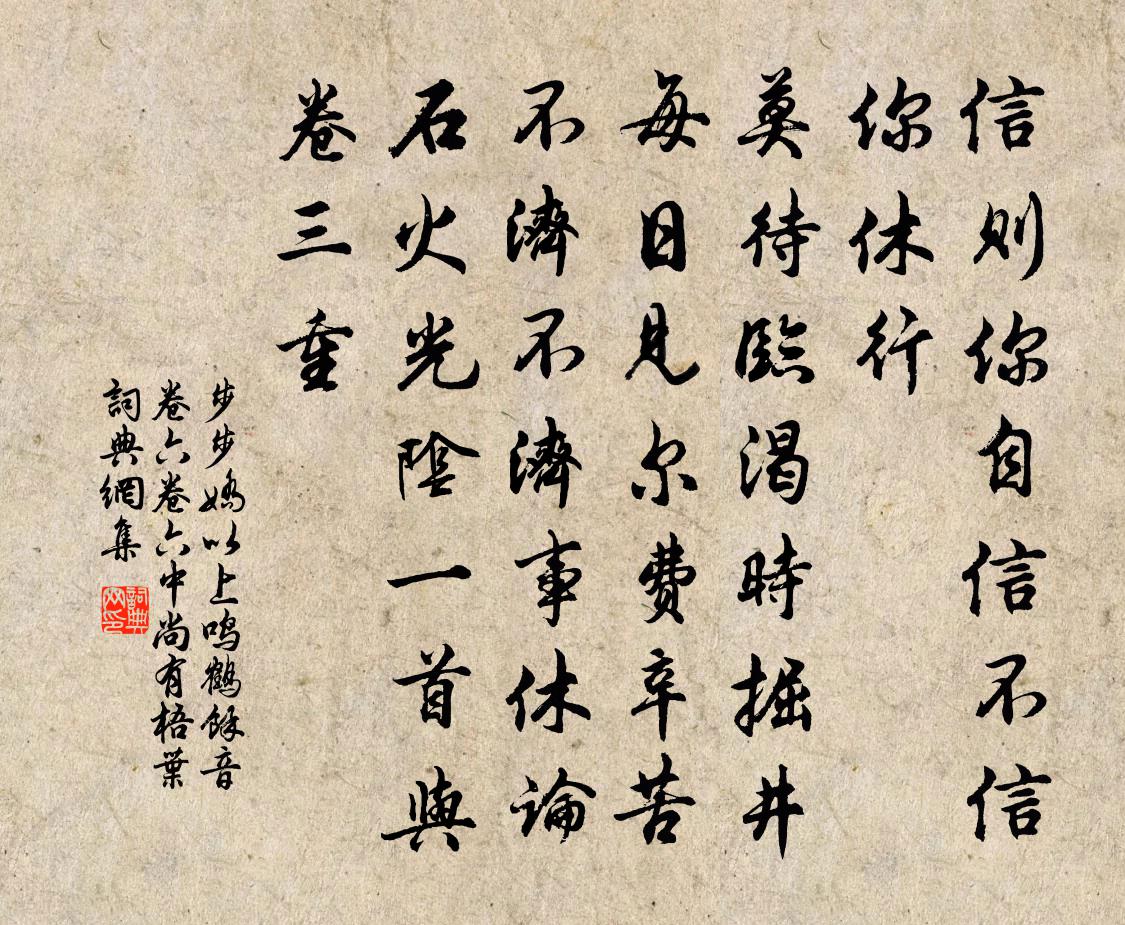 信則你自信不信
你休行
莫待臨渴時掘井
每日見尔費辛苦
不濟不濟事休論
石火光陰一首與
卷三重
步步嬌以上鳴鶴餘音
卷六卷六中尚有梧葉
詞典網集
詞典
网印